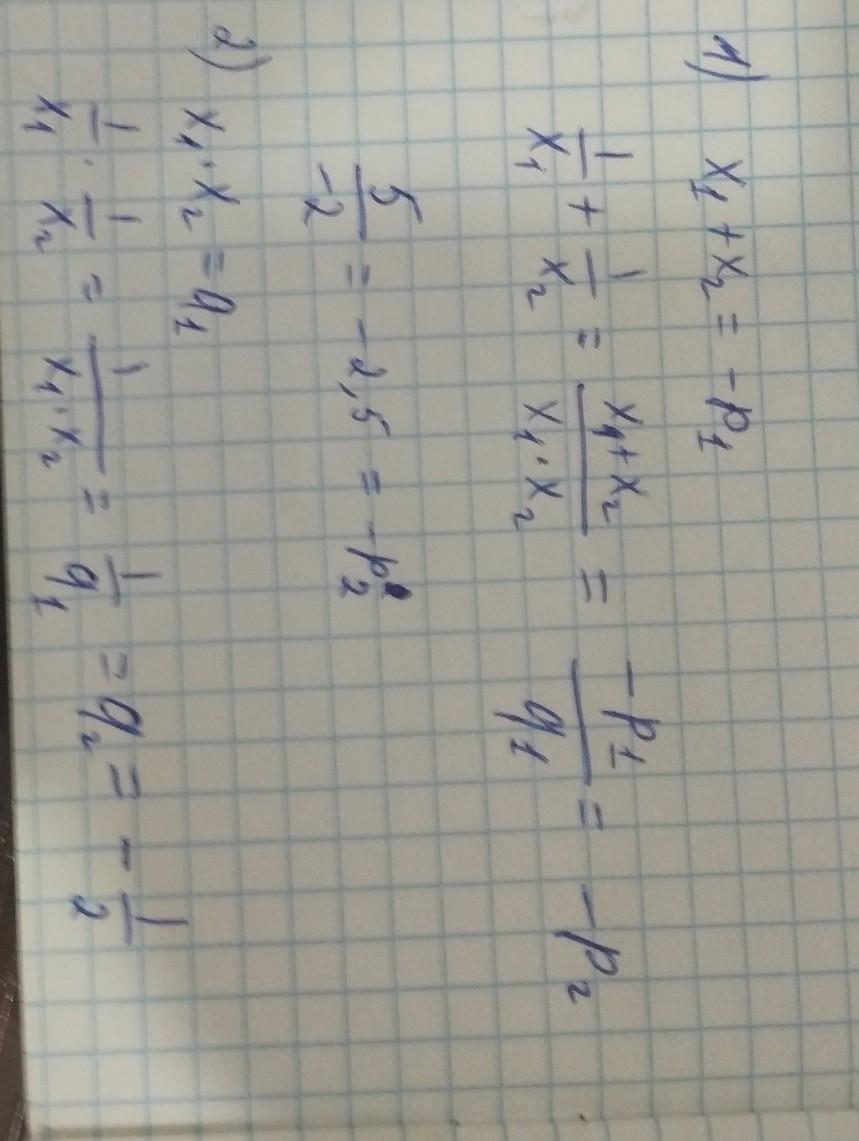 1) x₁ + x₂ = -p₁
1/x₁ + 1/x₂ = (x₁ + x₂)/(x₁ · x₂) = -p₁/q₁ = -p₂
5/-2 = -2,5 = -p₂
2) x₁ · x₂ = q₁
1/x₁ · 1/x₂ = 1/(x₁ · x₂) = 1/q₁ = q₂ = -1/2